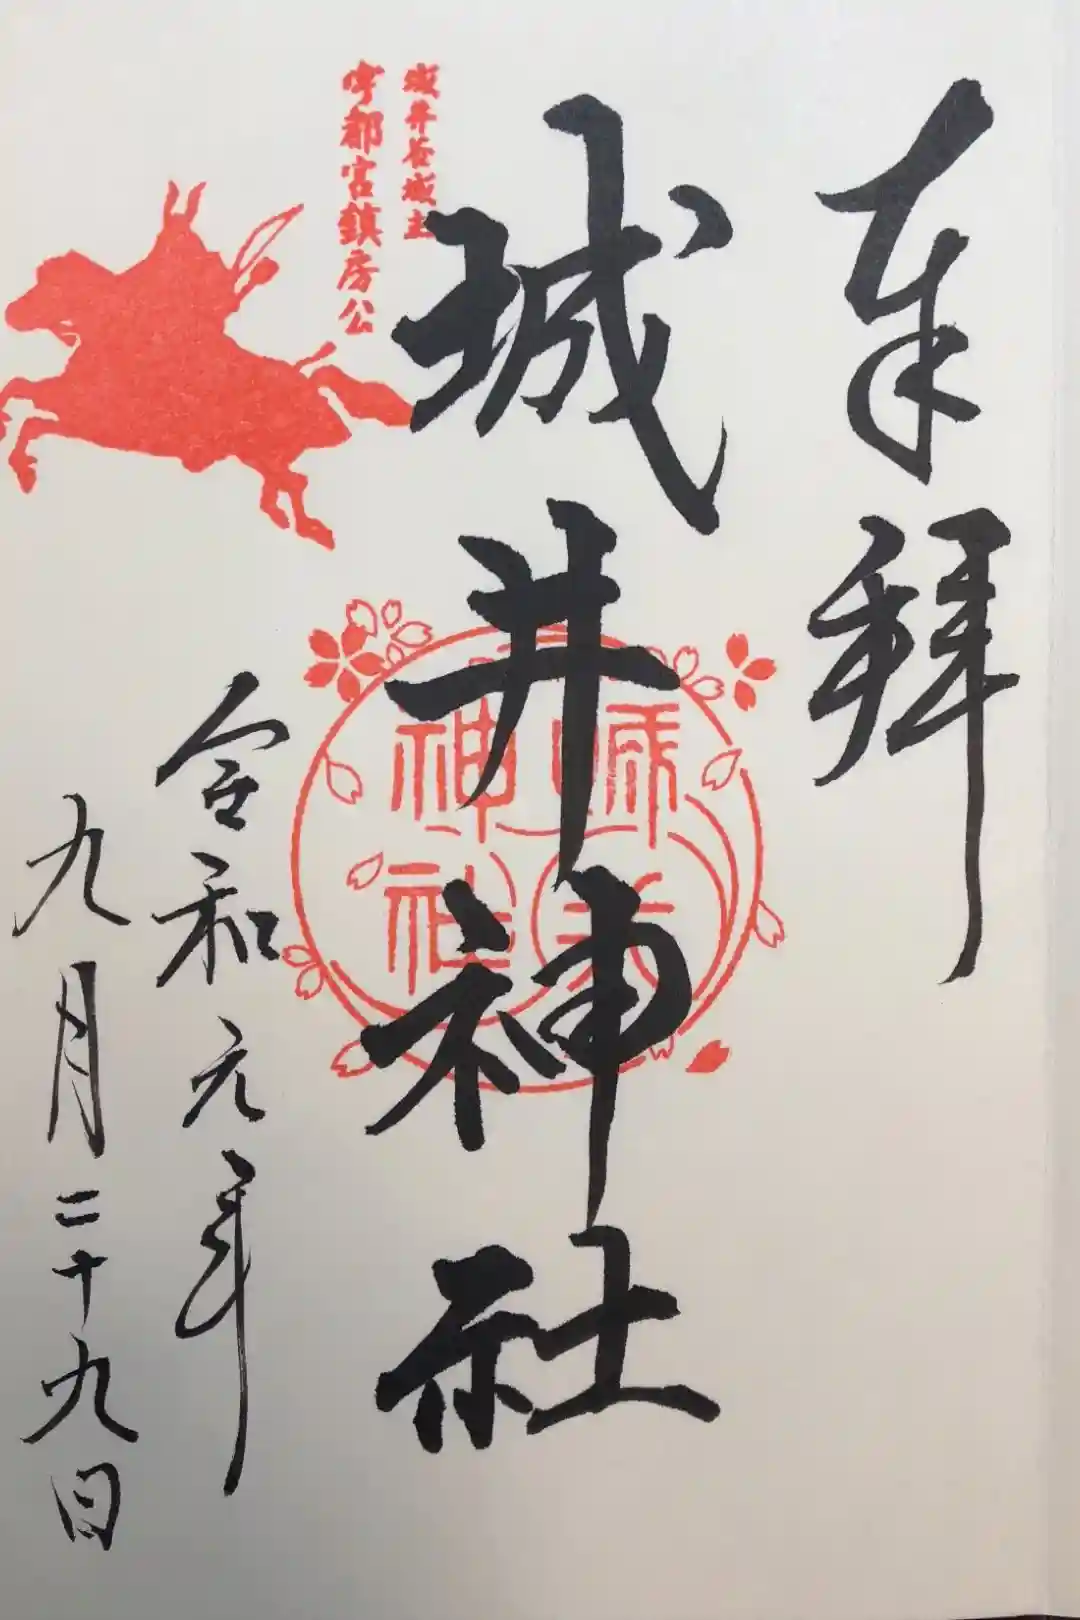 奉拝
城井神社
城井谷城主
宇都宮鎮房公
城井
神社
令和元年
九月二十九日